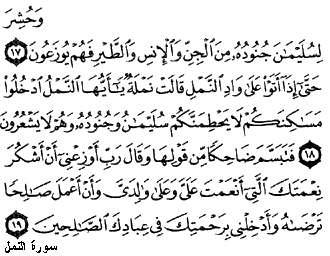 وَحُشِرَ
لِسُلَيْمَـٰنَ جُنُودُهُۥ مِنَ ٱلْجِنِّ وَٱلْإِنسِ وَٱلطَّيْرِ فَهُمْ يُوزَعُونَ ١٧
حَتَّىٰٓ إِذَآ أَتَوْا۟ عَلَىٰ وَادِ ٱلنَّمْلِ قَالَتْ نَمْلَةٌ يَـٰٓأَيُّهَا ٱلنَّمْلُ ٱدْخُلُوا۟
مَسَـٰكِنَكُمْ لَا يَحْطِمَنَّكُمْ سُلَيْمَـٰنُ وَجُنُودُهُۥ وَهُمْ لَا يَشْعُرُونَ
١٨ فَتَبَسَّمَ ضَاحِكًا مِّن قَوْلِهَا وَقَالَ رَبِّ أَوْزِعْنِىٓ أَنْ أَشْكُرَ
نِعْمَتَكَ ٱلَّتِىٓ أَنْعَمْتَ عَلَىَّ وَعَلَىٰ وَٰلِدَىَّ وَأَنْ أَعْمَلَ صَـٰلِحًا
تَرْضَىٰهُ وَأَدْخِلْنِى بِرَحْمَتِكَ فِى عِبَادِكَ ٱلصَّـٰلِحِينَ ١٩
سورة النمل